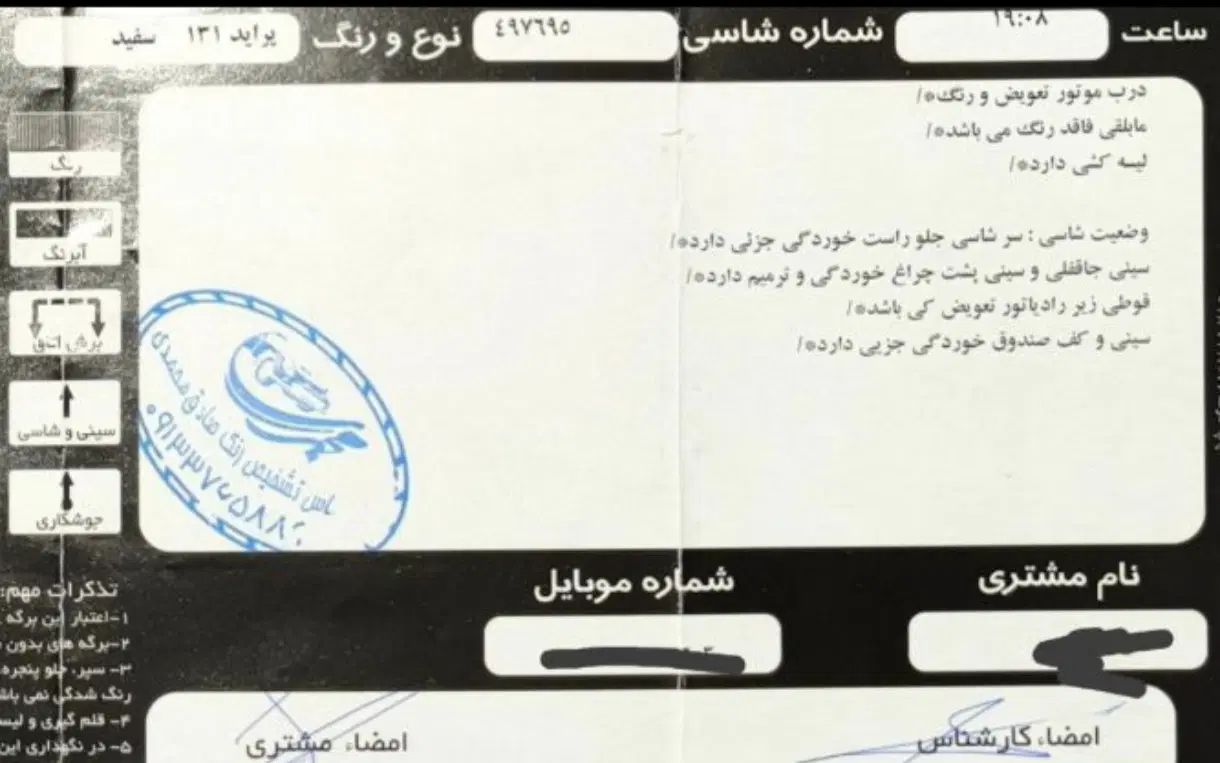 ساعت ۱۹:۰۸ شماره شاسی ٤٩٧٦٩٥ نوع و رنگ پراید ۱۳۱ سفید
درب موتور تعویض و رنگ*/
مابلقی فاقد رنگ می باشد*/
لیسه کشی دارد*/
وضعیت شاسی : سر شاسی جلو راست خوردگی جزئی دارد*/
سینی جاقفلی و سینی پشت چراغ خوردگی و ترمیم دارد*/
قوطی زیر رادیاتور تعویض کی باشد*/
سینی و کف صندوق خوردگی جزیی دارد*/
رنگ
آبرنگ
برش اتاق
سینی و شاسی
جوشکاری
تشخیص رنگ صادق محمدی
نام مشتری
شماره موبایل
امضاء کارشناس
امضاء مشتری
تذکرات مهم:
۱-اعتبار این برگه
۲-برگه های بدون
۳- سپر، جلو پنجره،
رنگ شدگی نمی
۴- قلم گیری و
۵- در نگهداری این